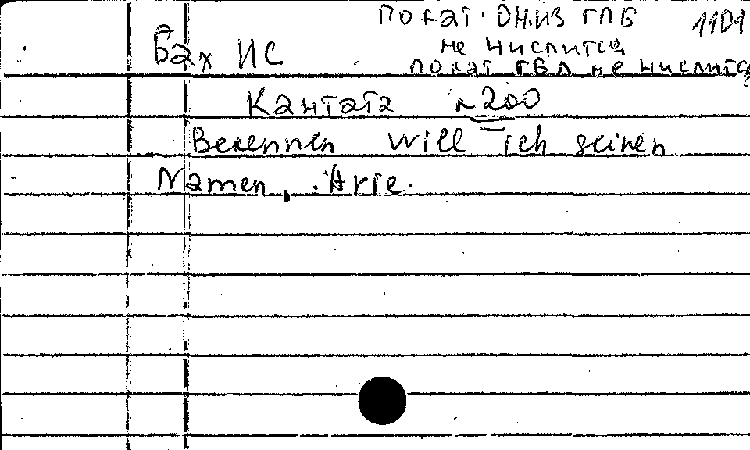 по кат. ОНИЗ ГПБ 1101
не числится
по кат ГБЛ не числится
Бах ИС
Кантата №200
Bekennen will ich seinen
Namen, Arie.